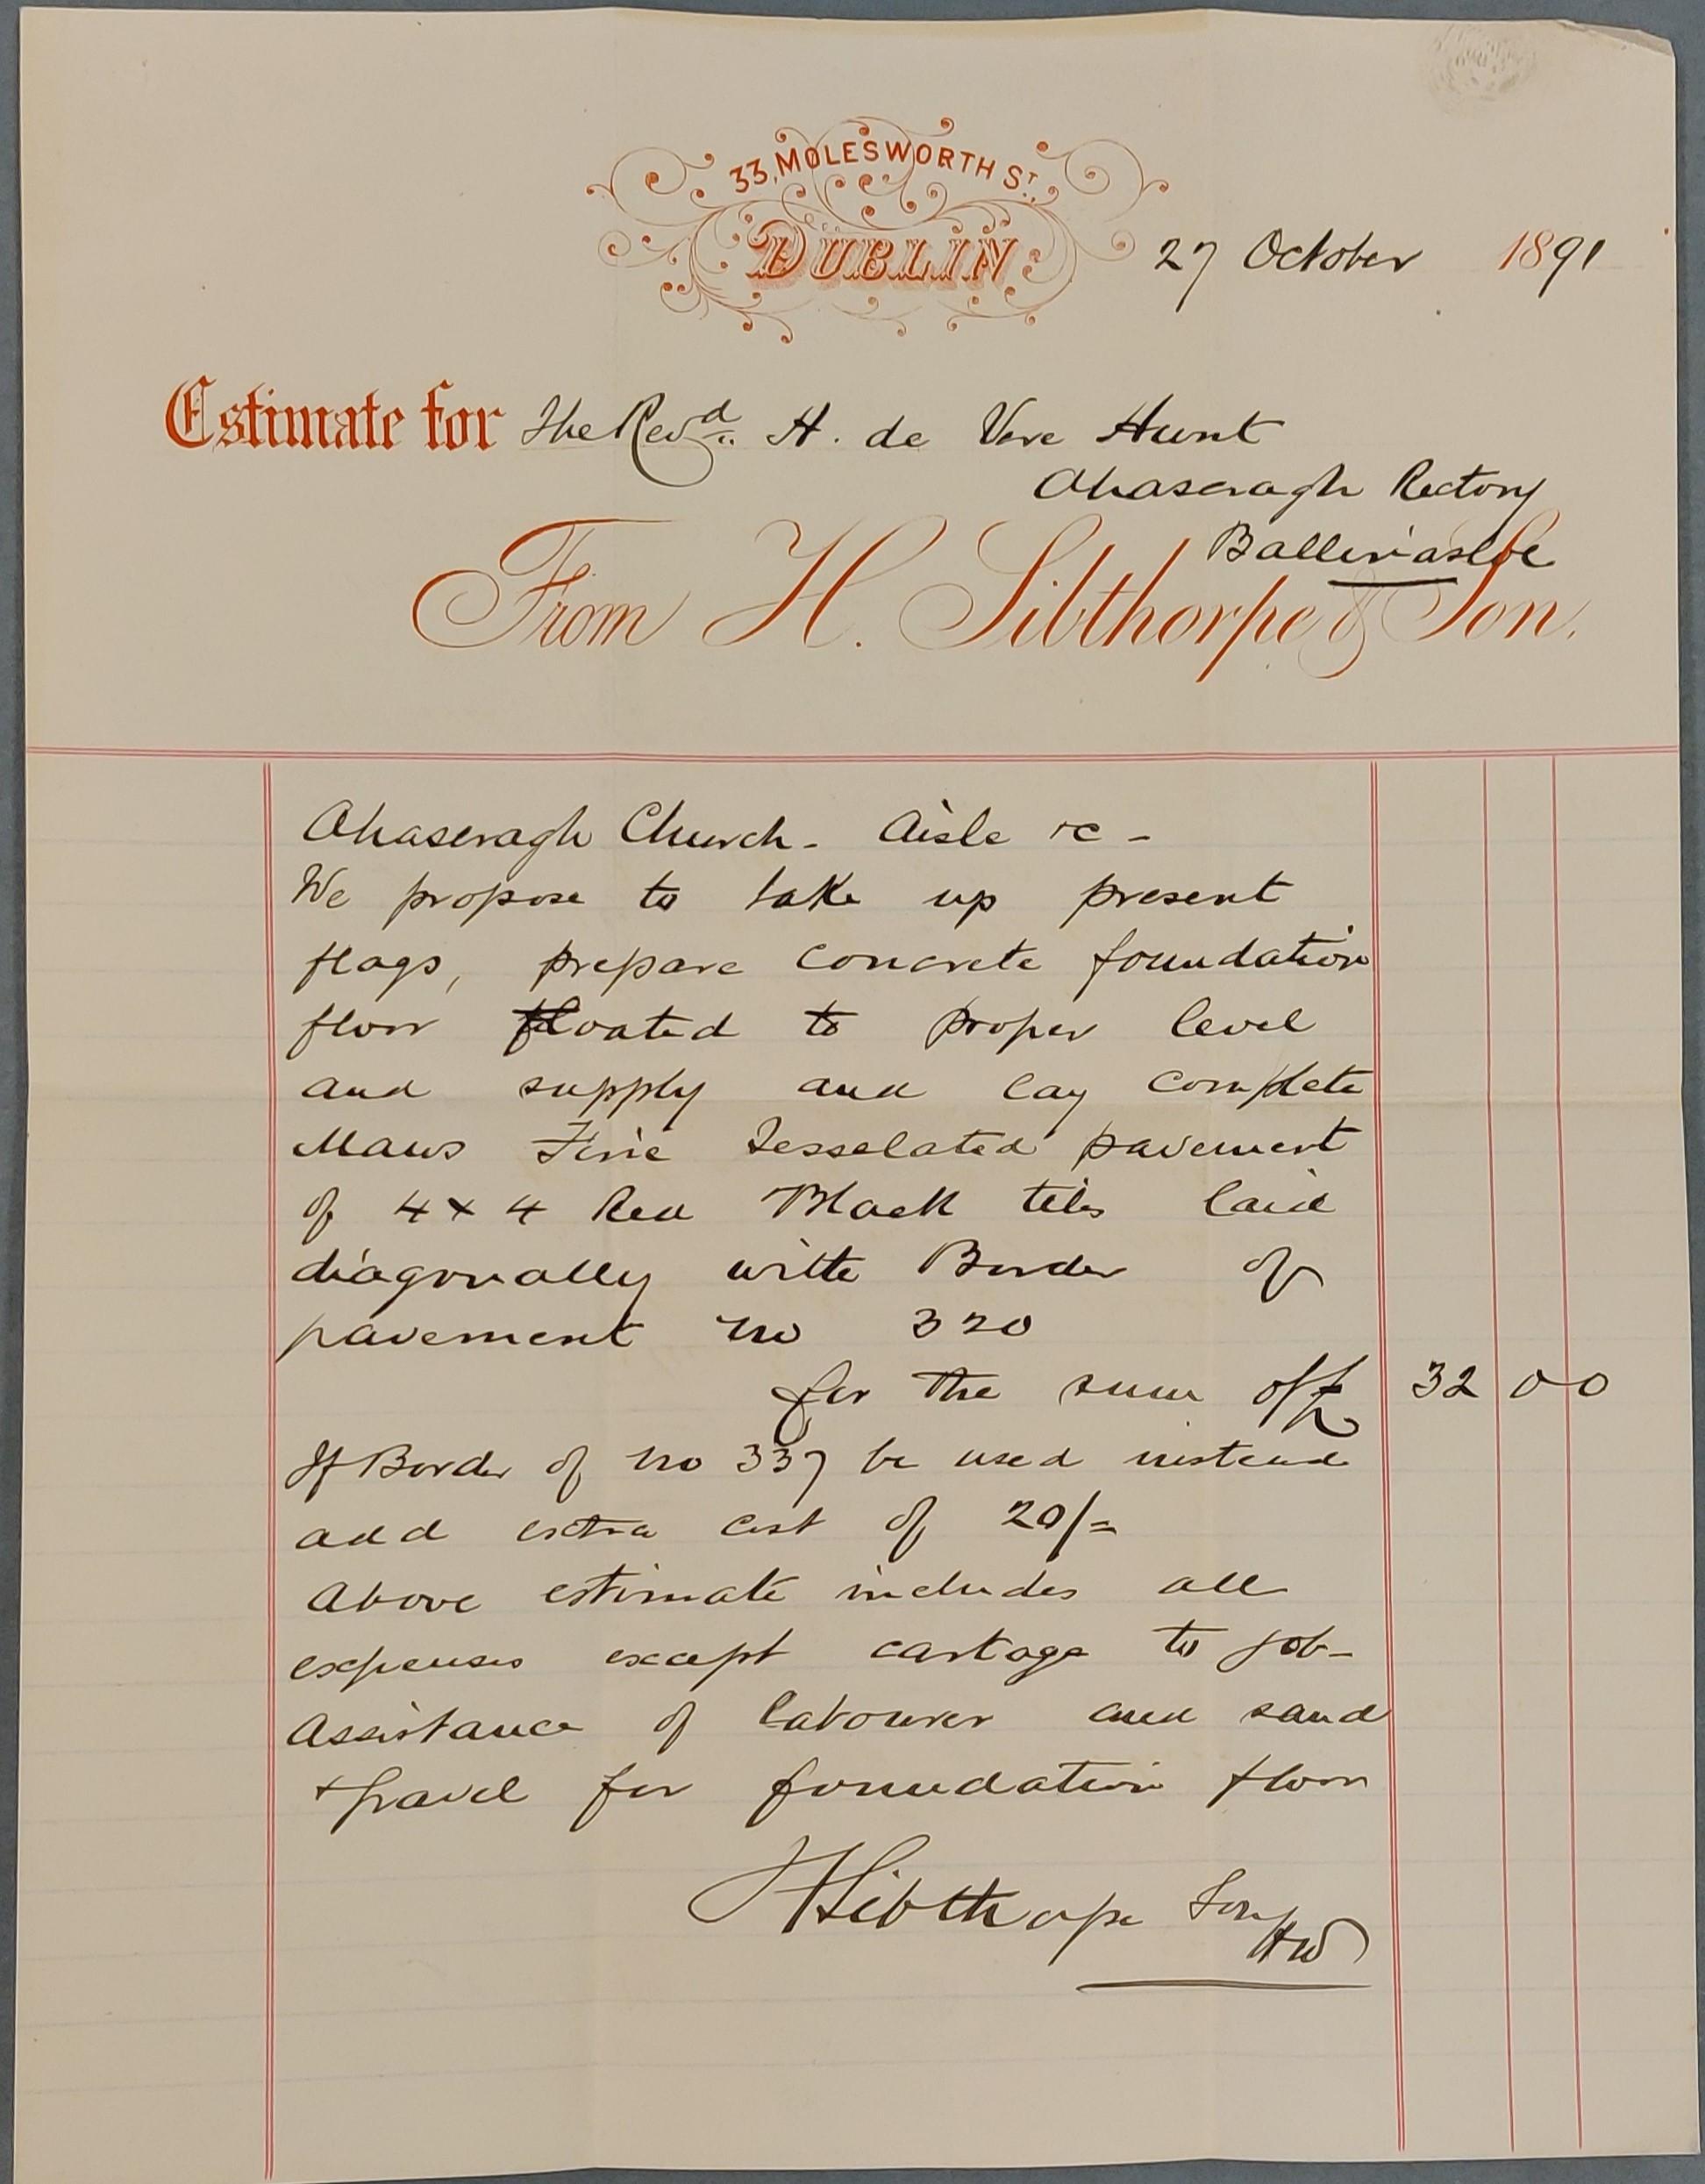 33, MOLESWORTH ST.,
DUBLIN
27 October 1891
Estimate for The Revd. H. de Vere Hunt
Ahascragh Rectory
Ballinasloe
From H. Sibthorpe & Son.
Ahascragh Church - Aisle &c -
We propose to take up present
flags, prepare concrete foundation
floor floated to proper level
and supply and lay complete
Maws Fine Tesselated pavement
of 4 x 4 Red Black tiles laid
diagonally with Border of
pavement no 320
for the sum of £ 32 0 0
If Border of no 337 be used instead
add extra cost of 20/=
Above estimate includes all
expenses except cartage to job -
Assistance of labourer and sand
+ gravel for foundation floor
H Sibthorpe Son
HW